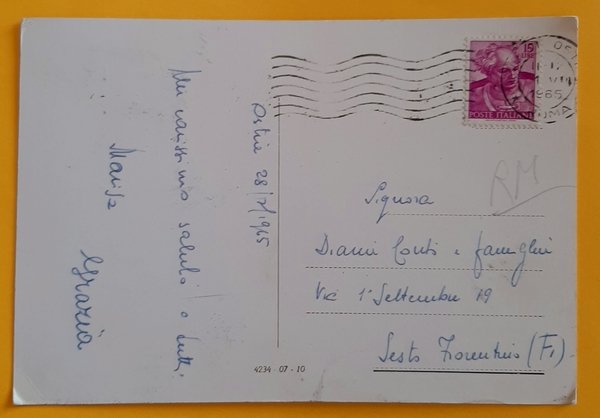 Ostia 28/7/1965
Un carissimo saluto a tutti.
Marisa
Grazia
15
LIRE
POSTE ITALIANE
1965
ROMA
RM
Signora
Dianni Conti e famiglia
Via 1° Settembre 19
Sesto Fiorentino (Fi)
4234 - 07 - 10